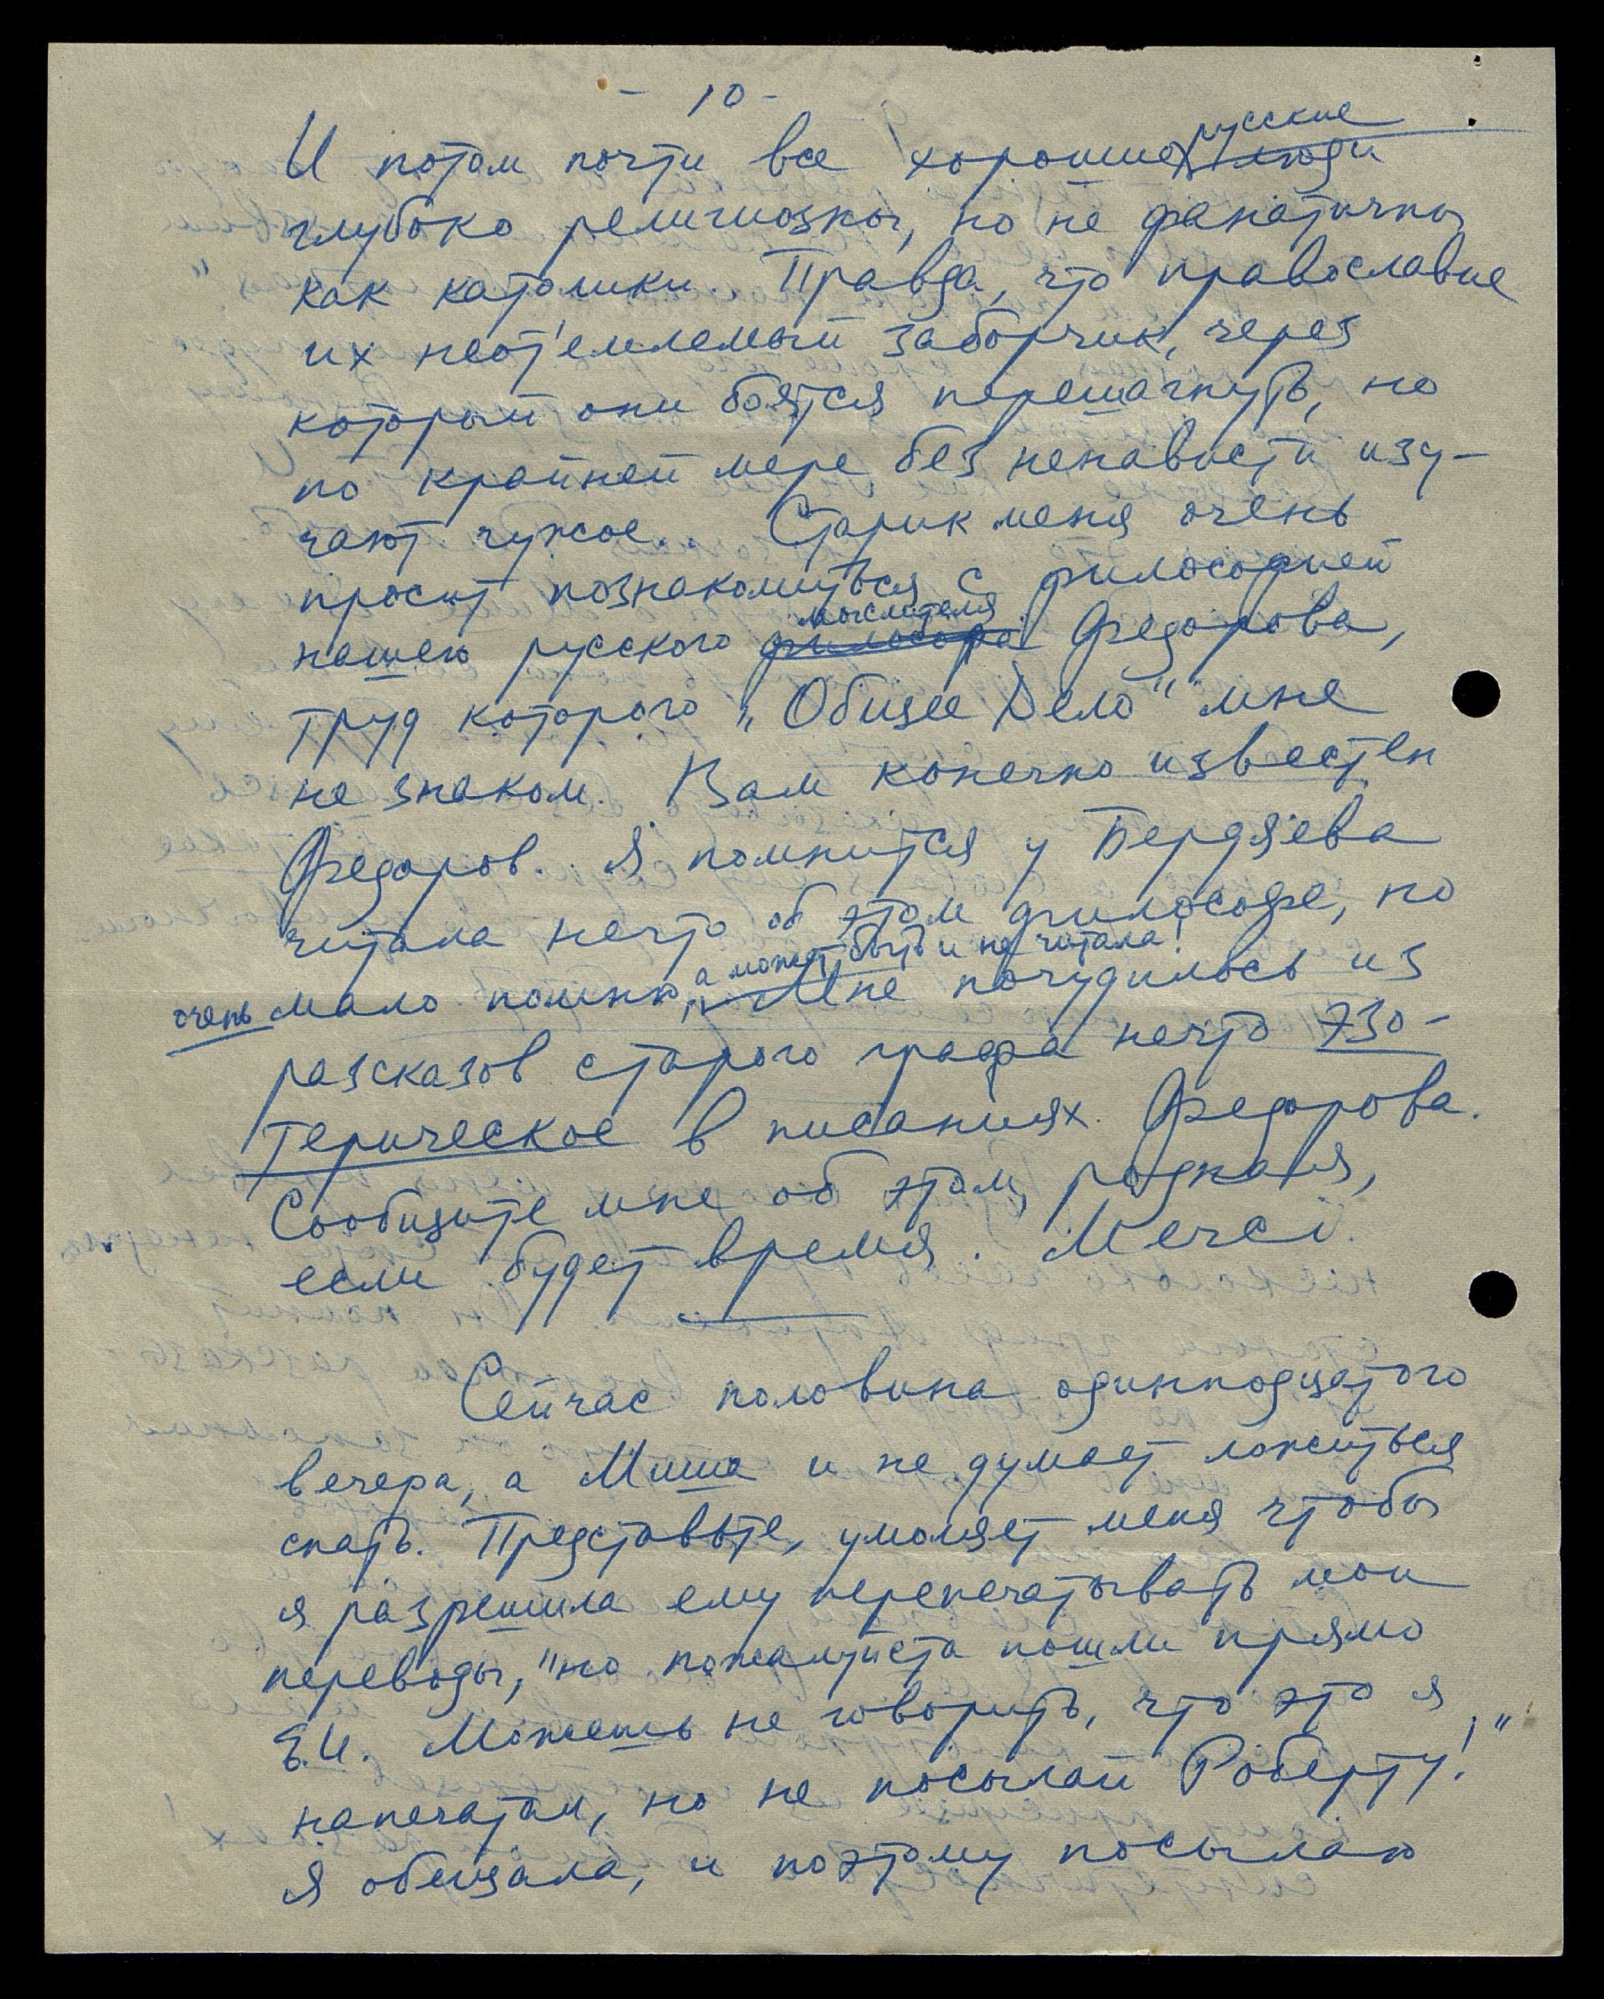 - 10 -
И потом почти все хорошие русские люди
глубоко религиозны, но не фанатичны
как католики. Правда, что православие
их неот'емлемый заборчик, через
который они боятся перешагнуть, но
по крайней мере без ненависти изу-
чают чужое. Старик меня очень
просит познакомиться с философией
нашего русского философа мыслителя Федорова,
труд которого „Общее Дело" мне
не знаком. Вам конечно известен
Федоров. Я помнится у Бердяева
читала нечто об этом философе, но
очень мало помню, а может быть и не читала! Мне почудилось из
разсказов старого графа нечто эзо-
терическое в писаниях Федорова.
Сообщите мне об этом, родная,
если будет время. Merci.
Сейчас половина одиннадцатого
вечера, а Миша и не думает ложиться
спать. Представьте, умоляет меня чтобы
я разрешила ему перепечатывать мои
переводы, "но пожалуйста пошли прямо
Е.И. Можешь не говорить, что это я
напечатал, но не посылай Роберту!"
Я обещала, и поэтому посылаю